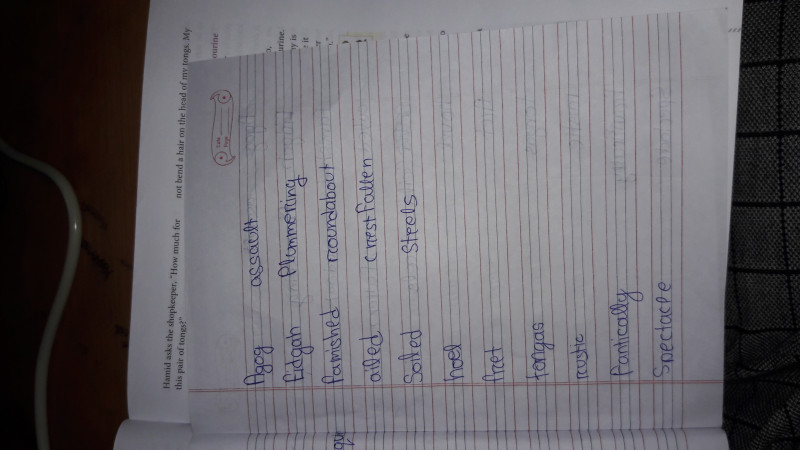 Hamid asks the shopkeeper, "How much for
this pair of tongs?"
not bend a hair on the head of my tongs. My
Agog assault
Eidgah Plummering
famished roundabout
ailed crest fallen
Soiled Steels
hoel
fret
tongas
rustic
fantically
Spectacle